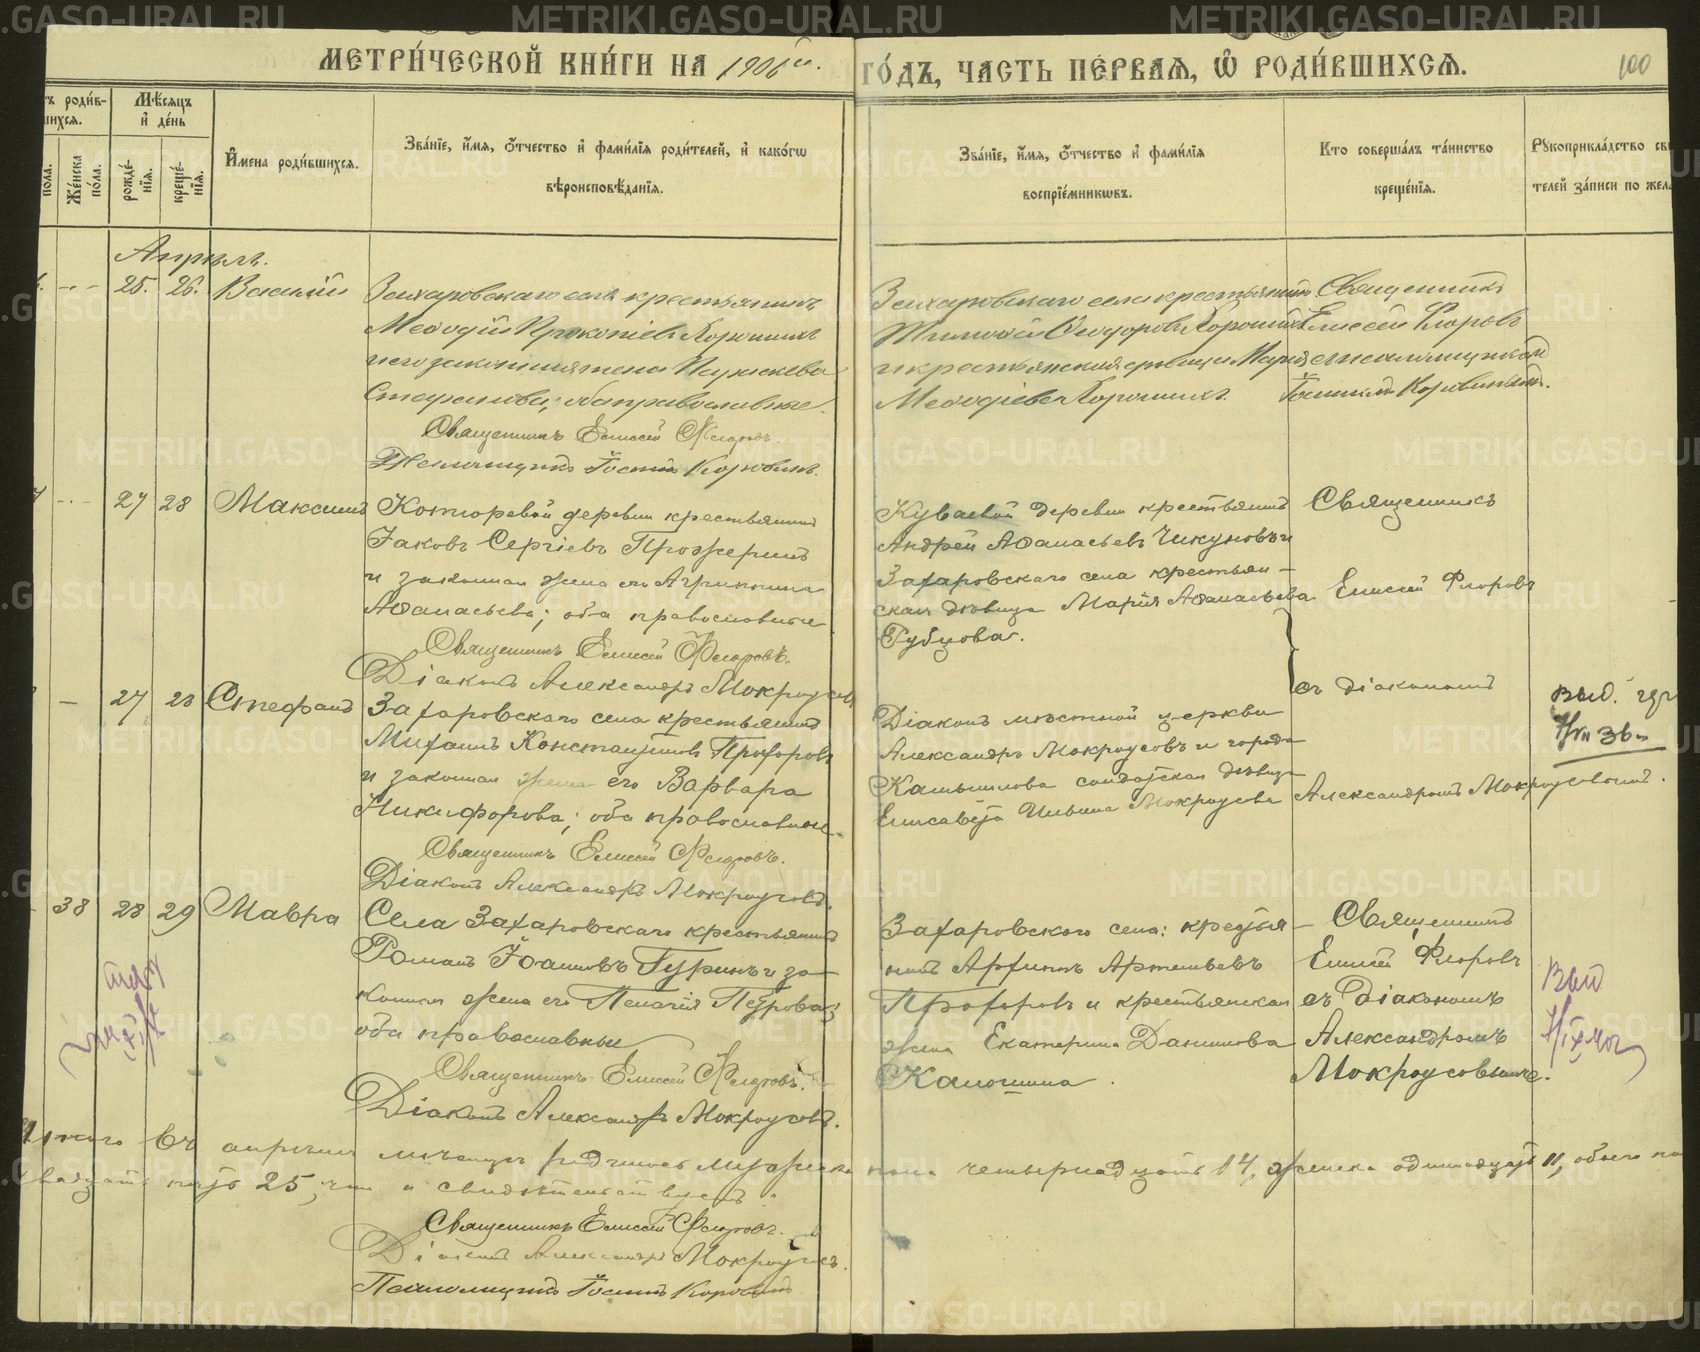 МЕТРИ́ЧЕСКОЙ КНИ́ГИ НА 1906й.
ГО́ДЪ, ЧАСТЬ ПЕ́РВАѦ, Ѽ РОДИ́ВШИХСѦ.
100
ъ роди́в-
шихсѧ.
пола.
Же́нска по́ла.
Мѣ́сѧцъ и҆ де́нь
рожде́-нїѧ.
креще́-нїѧ.
И҆мена роди́вшихсѧ.
Зва́нїе, и҆́мѧ, ѻ҆́тчество и҆ фами́лїѧ роди́телей, и҆ како́гѡ
вѣроисповѣ́данїѧ.
Зва́нїе, и҆́мѧ, ѻ҆́тчество и҆ фами́лїѧ
воспрїе́мникѡвъ.
Кто соверша́лъ та́инство
креще́нїѧ.
Рꙋкоприкла́дство сви
телей за́писи по жела
Апрѣль.
25. 26. Василій
Захаровскаго села крестьянинъ
Меѳодій Прокопіевъ Хорошихъ
и его законная жена Параскева
Стефанова; оба православные.
Священникъ Елисей Флоровъ.
Псаломщикъ Іосифъ Коровинъ.
Захаровскаго села крестьянинъ
Тимоѳей Ѳеодоровъ Хорошихъ
и крестьянская дѣвица Марія
Меѳодіева Хорошихъ.
Священникъ
Елисей Флоровъ
съ псаломщикомъ
Іосифомъ Коровинымъ.
27 28 Максимъ
Комюревой деревни крестьянинъ
Іаковъ Сергіевъ Прожеринъ
и законная жена его Агрипина
Аѳанасьева; оба православные.
Священникъ Елисей Флоровъ.
Діаконъ Александръ Мокроусовъ
Куваевой деревни крестьянинъ
Андрей Аѳанасьевъ Чикуновъ и
Захаровскаго села крестьян-
ская дѣвица Марія Аѳанасьева
Губцова.
Священникъ
Елисей Флоровъ
съ діакономъ
Александромъ Мокроусовымъ.
— 27 28 Стефанъ
Захаровскаго села крестьянинъ
Михаилъ Константиновъ Прохоровъ
и законная жена его Варвара
Никифорова; оба православные.
Священникъ Елисей Флоровъ.
Діаконъ Александръ Мокроусовъ.
Діаконъ мѣстной церкви
Александръ Мокроусовъ и города
Камышлова солдатская дѣвица
Елисавета Ильина Мокроусова
38 28 29 Мавра
Села Захаровскаго крестьянинъ
Романъ Іоанновъ Гуринъ и за-
конная жена его Пелагія Петрова;
оба православные
Священникъ Елисей Флоровъ.
Діаконъ Александръ Мокроусовъ.
Захаровскаго села: крестья-
нинъ Архипъ Артемьевъ
Прохоровъ и крестьянская
жена Екатерина Данилова
Калошина.
Священникъ
Елисей Флоровъ
съ Діакономъ
Александромъ
Мокроусовымъ.
Итого въ апрѣлѣ мѣсяцѣ родилось мужеска пола четырнадцать 14, женска одинадцать 11, обоего по
двадцать пять 25, свидѣтельствуемъ.
Священникъ Елисей Флоровъ.
Діаконъ Александръ Мокроусовъ.
Псаломщикъ Іосифъ Коровинъ
METRIKI.GASO-URAL.RU